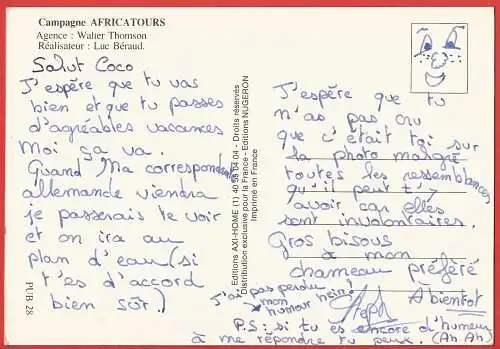 Campagne AFRICATOURS
Agence : Walter Thomson
Réalisateur : Luc Béraud.
Salut Coco
J'espère que tu vas
bien et que tu passes
d'agréables vacances
Moi ça va.
Quand Ma correspondante
allemande viendra
je passerais te voir
et on ira au
plan d'eau (si
t'es d'accord
bien sûr.)
PUB 28
Editions AXI-HOME (1) 40 53 04 04 - Droits réservés
Distribution exclusive pour la France - Editions NUGERON
Imprimé en France
J'espère que tu
n'as pas cru
que c'était toi sur
la photo malgré
toutes les ressemblances
qu'il peut t'y
avoir car elles
sont involontaires.
Gros bisous
à mon
chameau préféré
J'ai pas perdu
mon
humour hein!
Steph
A bientot
P.S: si tu es encore d'humeur
à me répondre tu peux. (Ah Ah)